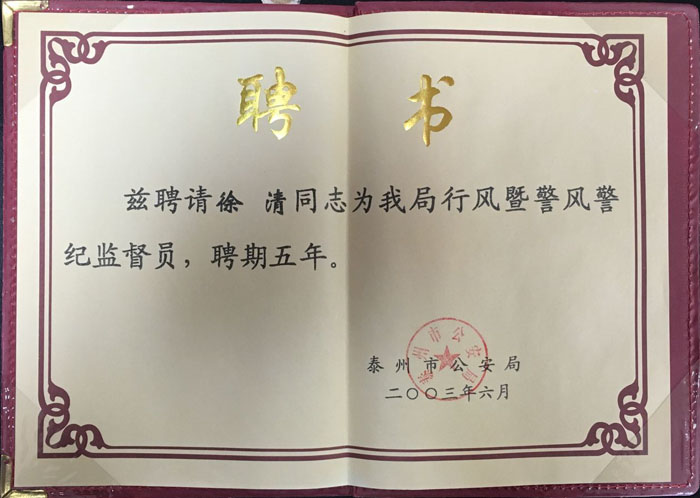 聘 书
兹聘请徐 清同志为我局行风暨警风警
纪监督员，聘期五年。
泰州市公安局
泰州市公安局
二〇〇三年六月